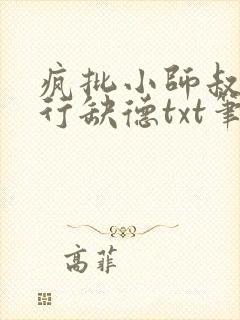 疯批小師叔
行缺德txt筆
高菲